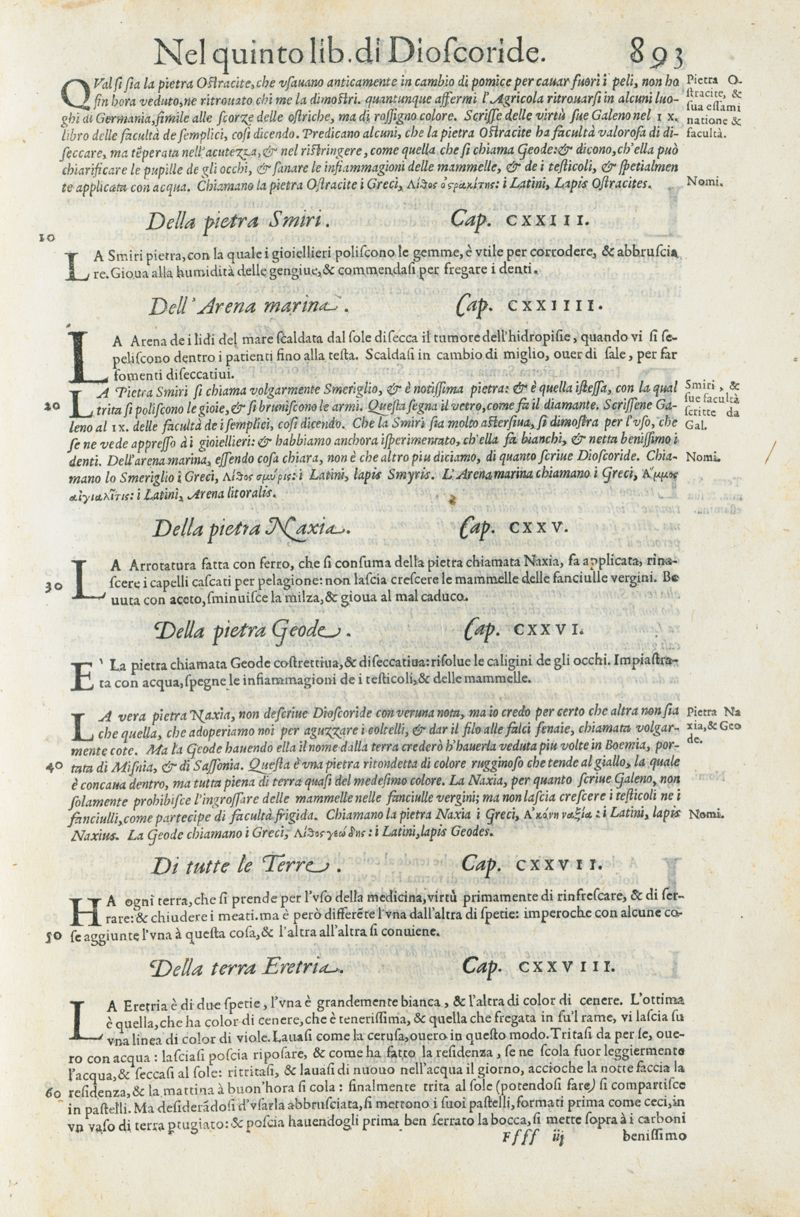 Nel quinto lib. di Dioſcoride. 893
QVal ſi ſia la pietra Oſtracite, che vſauano anticamente in cambio di pomice per cauar fuori i peli, non ho
fin hora veduto, ne ritrouato chi me la dimoſtri. quantunque affermi l'Agricola ritrouarſi in alcuni luo-
ghi di Germania, ſimile alle ſcorze delle oſtriche, ma di roſſigno colore. Scriſſe delle virtù ſue Galeno nel IX.
libro delle facultà de ſemplici, coſi dicendo. Predicano alcuni, che la pietra Oſtracite ha facultà valoroſa di di-
ſeccare, ma tẽperata nell'acutezza, & nel riſtringere, come quella che ſi chiama Geode: & dicono, ch'ella può
chiarificare le pupille de gli occhi, & ſanare le infiammagioni delle mammelle, & de i teſticoli, & ſpetialmen
te applicata con acqua. Chiamano la pietra Oſtracite i Greci, Λίθος ὀςρακίτης: i Latini, Lapis Oſtracites.
Pietra O-
ſtracite, &
ſua eſſami
natione &
facultà.
Nomi.
Della pietra Smiri. Cap. CXXIII.
10
LA Smiri pietra, con la quale i gioiellieri poliſcono le gemme, è vtile per corrodere, & abbruſcia
re. Gioua alla humidità delle gengiue, & commendaſi per fregare i denti.
Dell'Arena marina. Cap. CXXIIII.
LA Arena de i lidi del mare ſcaldata dal ſole diſecca il tumore dell'hidropiſie, quando vi ſi ſe-
peliſcono dentro i patienti fino alla teſta. Scaldaſi in cambio di miglio, ouer di ſale, per far
fomenti diſeccatiui.
LA Pietra Smiri ſi chiama volgarmente Smeriglio, & è notiſſima pietra: & è quella iſteſſa, con la qual
20 trita ſi poliſcono le gioie, & ſi bruniſcono le armi. Queſta ſegna il vetro, come fa il diamante. Scriſſene Ga-
leno al IX. delle facultà de i ſemplici, coſi dicendo. Che la Smiri ſia molto aſterſiua, ſi dimoſtra per l'vſo, che
ſe ne vede appreſſo à i gioiellieri: & habbiamo anchora iſperimentato, ch'ella fa bianchi, & netta beniſſimo i
denti. Dell'arena marina, eſſendo coſa chiara, non è che altro piu diciamo, di quanto ſcriue Dioſcoride. Chia-
mano lo Smeriglio i Greci, Λίθος σμύρις: i Latini, lapis Smyris. L'Arena marina chiamano i Greci, Ἄμμος
αἰγιαλῖτις: i Latini, Arena litoralis.
Smiri, &
ſue facultà
ſcritte da
Gal.
Nomi.
Della pietra Naxia. Cap. CXXV.
LA Arrotatura fatta con ferro, che ſi conſuma della pietra chiamata Naxia, fa applicata, rina-
30 ſcere i capelli caſcati per pelagione: non laſcia creſcere le mammelle delle fanciulle vergini. Be
uuta con aceto, ſminuiſce la milza, & gioua al mal caduco.
Della pietra Geode. Cap. CXXVI.
E' La pietra chiamata Geode coſtrettiua, & diſeccatiua: riſolue le caligini de gli occhi. Impiaſtra-
ta con acqua, ſpegne le infiammagioni de i teſticoli, & delle mammelle.
LA vera pietra Naxia, non deſcriue Dioſcoride con veruna nota, ma io credo per certo che altra non ſia
che quella, che adoperiamo noi per aguzzare i coltelli, & dar il filo alle falci fenaie, chiamata volgar-
mente cote. Ma la Geode hauendo ella il nome dalla terra crederò h'hauerla veduta piu volte in Boemia, por-
40 tata di Miſnia, & di Saſſonia. Queſta è vna pietra ritondetta di colore rugginoſo che tende al giallo, la quale
è concaua dentro, ma tutta piena di terra quaſi del medeſimo colore. La Naxia, per quanto ſcriue Galeno, non
ſolamente prohibiſce l'ingroſſare delle mammelle nelle fanciulle vergini; ma non laſcia creſcere i teſticoli ne i
fanciulli, come partecipe di facultà frigida. Chiamano la pietra Naxia i Greci, Ἀκόνη ναξία: i Latini, lapis
Naxius. La Geode chiamano i Greci, Λίθος γεώδης: i Latini, lapis Geodes.
Pietra Na
xia, & Geo
de.
Nomi.
Di tutte le Terre. Cap. CXXVII.
HA ogni terra, che ſi prende per l'vſo della medicina, virtù primamente di rinfreſcare, & di ſer-
rare: & chiudere i meati. ma è però differẽte l'vna dall'altra di ſpetie: imperoche con alcune co-
50 ſe aggiunte l'vna à queſta coſa, & l'altra all'altra ſi conuiene.
Della terra Eretria. Cap. CXXVIII.
LA Eretria è di due ſpetie, l'vna è grandemente bianca, & l'altra di color di cenere. L'ottima
è quella, che ha color di cenere, che è teneriſſima, & quella che fregata in ſu'l rame, vi laſcia ſu
vna linea di color di viole. Lauaſi come la ceruſa, ouero in queſto modo. Tritaſi da per ſe, oue-
ro con acqua: laſciaſi poſcia ripoſare, & come ha fatto la reſidenza, ſe ne ſcola fuor leggiermente
l'acqua, & ſeccaſi al ſole: ritritaſi, & lauaſi di nuouo nell'acqua il giorno, accioche la notte faccia la
60 reſidenza, & la mattina à buon'hora ſi cola: finalmente trita al ſole (potendoſi fare) ſi compartiſce
in paſtelli. Ma deſiderãdoſi d'vſarla abbruſciata, ſi mettono i ſuoi paſtelli, formati prima come ceci, in
vn vaſo di terra ptugiato: & poſcia hauendogli prima ben ſerrato la bocca, ſi mette ſopra à i carboni
Ffff iij beniſſimo